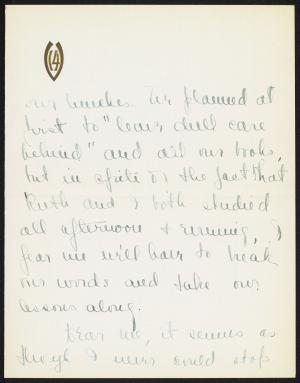 our lunches. We planned at
first to "leave dull care
behind" and all our books,
but in spite of the fact that
Ruth and I both studied
all afternoon & evening, I
fear we will have to break
our words and take our
lessons along.
Dear me, it seems as
though I never could stop